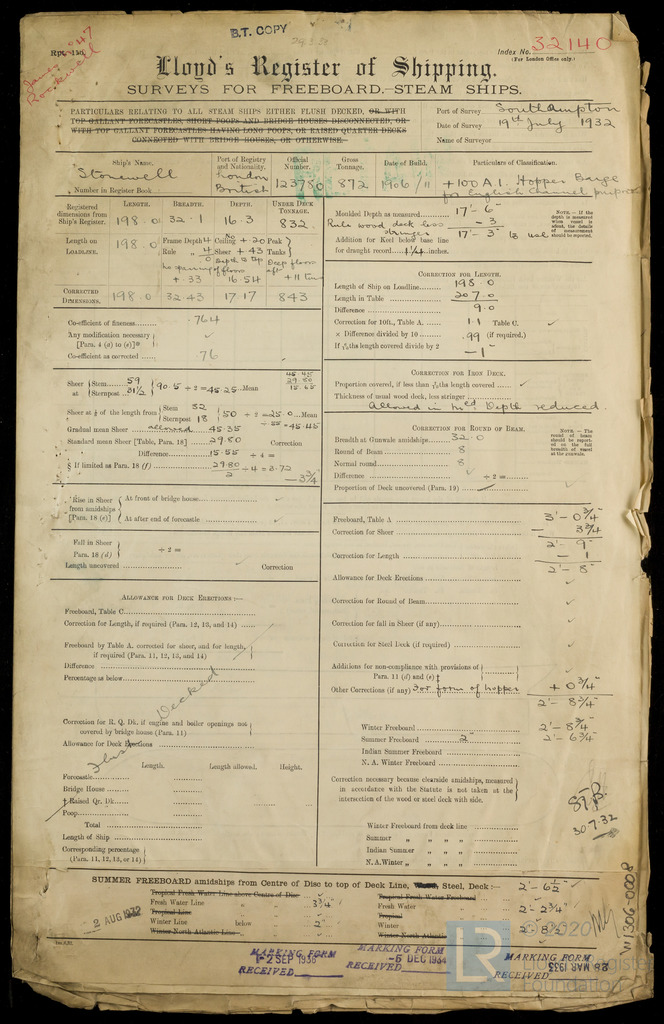 B.T. COPY
Index No. 32140
(For London Office only.)
Lloyd's Register of Shipping.
SURVEYS FOR FREEBOARD.—STEAM SHIPS.
PARTICULARS RELATING TO ALL STEAM SHIPS EITHER FLUSH DECKED, OR WITH
TOP GALLANT FORECASTLES, SHORT POOPS AND BRIDGE HOUSES DISCONNECTED, OR
WITH TOP GALLANT FORECASTLES HAVING LONG POOPS, OR RAISED QUARTER DECKS
CONNECTED WITH BRIDGE HOUSES, OR OTHERWISE.
Port of Survey Southampton
Date of Survey 19th July 1932
Name of Surveyor
Ship's Name. Port of Registry and Nationality. Official Number. Gross Tonnage. Date of Build. Particulars of Classification.
Stonewell London British 123780 872 1906/11 +100A1. Hopper Barge
for English Channel purposes
Number in Register Book
Registered dimensions from Ship's Register. LENGTH. 198.0 BREADTH. 32.1 DEPTH. 16.3 UNDER DECK TONNAGE. 832
Length on LOADLINE. 198.0 Frame Depth Rule Ceiling + .20 Sheer + .43 Peak Tanks
+ .33 16.54
CORRECTED DIMENSIONS. 198.0 32.43 17.17 843
Moulded Depth as measured 17'-6"
Rule wood deck less stringer - 3
17'-3"
Addition for Keel below base line
for draught record 1/4 inches.
NOTE.—If the depth is measured when vessel is afloat, the details of measurement should be reported.
Co-efficient of fineness .764
Any modification necessary
[Para. 4 (a) to (e)]*
Co-efficient as corrected .76
CORRECTION FOR LENGTH.
Length of Ship on Loadline 198.0
Length in Table 207.0
Difference 9.0
Correction for 10ft., Table A. 1.1 Table C.
× Difference divided by 10 .99 (if required.)
If 6/10ths length covered divide by 2
- 1"
Sheer at Stem 59 Sternpost 31½ 90.5 ÷ 2 = 45.25 Mean
45.45
29.80
15.65
Sheer at ⅛ of the length from Stem 32 Sternpost 18 50 ÷ 2 = 25.0 Mean
÷ .55 = 45.45
Gradual mean Sheer allowed 45.35
Standard mean Sheer [Table, Para. 18] 29.80 Correction
Difference 15.55 ÷ 4 =
§ If limited as Para. 18 (f) 29.80/2 ÷ 4 = 3.72 - 3¾"
CORRECTION FOR IRON DECK.
Proportion covered, if less than 7/10ths length covered
Thickness of usual wood deck, less stringer
Allowed in Mld Depth reduced
CORRECTION FOR ROUND OF BEAM.
Breadth at Gunwale amidships 32.0
Round of Beam 8
Normal round 8
Difference ÷ 2 =
Proportion of Deck uncovered (Para. 19)
NOTE.—The round of beam should be reported on the full breadth of vessel at the gunwale.
Rise in Sheer from amidships [Para. 18 (e)] At front of bridge house
At after end of forecastle
Fall in Sheer
Para. 18 (d) ÷ 2 =
Length uncovered Correction
Freeboard, Table A 3'-0¾"
Correction for Sheer - 3¾"
2'-9"
Correction for Length - 1
2'-8"
Allowance for Deck Erections
Correction for Round of Beam
Correction for fall in Sheer (if any)
Correction for Steel Deck (if required)
Additions for non-compliance with provisions of
Para. 11 (d) and (e) ‡
Other Corrections (if any) For form of hopper + 0¾"
2'-8¾"
ALLOWANCE FOR DECK ERECTIONS:—
Freeboard, Table C
Correction for Length, if required (Para. 12, 13, and 14)
Freeboard by Table A. corrected for sheer, and for length,
if required (Para. 11, 12, 13, and 14)
Difference
Percentage as below
Flush Decked
Correction for R. Q. Dk. if engine and boiler openings not
covered by bridge house (Para. 11)
Allowance for Deck Erections
Length. Length allowed. Height.
Forecastle
Bridge House
† Raised Qr. Dk
Poop
Total
Length of Ship
Corresponding percentage
(Para. 11, 12, 13, or 14)
Winter Freeboard 2'-8¾"
Summer Freeboard 2" 2'-6¾"
Indian Summer Freeboard
N. A. Winter Freeboard
Correction necessary because clearside amidships, measured
in accordance with the Statute is not taken at the
intersection of the wood or steel deck with side.
30.7.32
Winter Freeboard from deck line
Summer " " "
Indian Summer " " "
N.A. Winter " " "
SUMMER FREEBOARD amidships from Centre of Disc to top of Deck Line, Wood, Steel, Deck:— 2'-6½"
Tropical Fresh Water Line above Centre of Disc Tropical Fresh Water Freeboard
Fresh Water Line " " 3¾" Fresh Water " 2'-2¾"
Tropical Line " " Tropical "
Winter Line below " 2" Winter " 2'-8½"
Winter North Atlantic Line " " Winter North Atlantic "
2 AUG 1932
MARKING FORM
RECEIVED 2 SEP 1936
MARKING FORM
RECEIVED -5 DEC 1934
MARKING FORM
RECEIVED 28 MAR 1933
W1306-0008
LR
© 2020
Lloyd's Register
Foundation